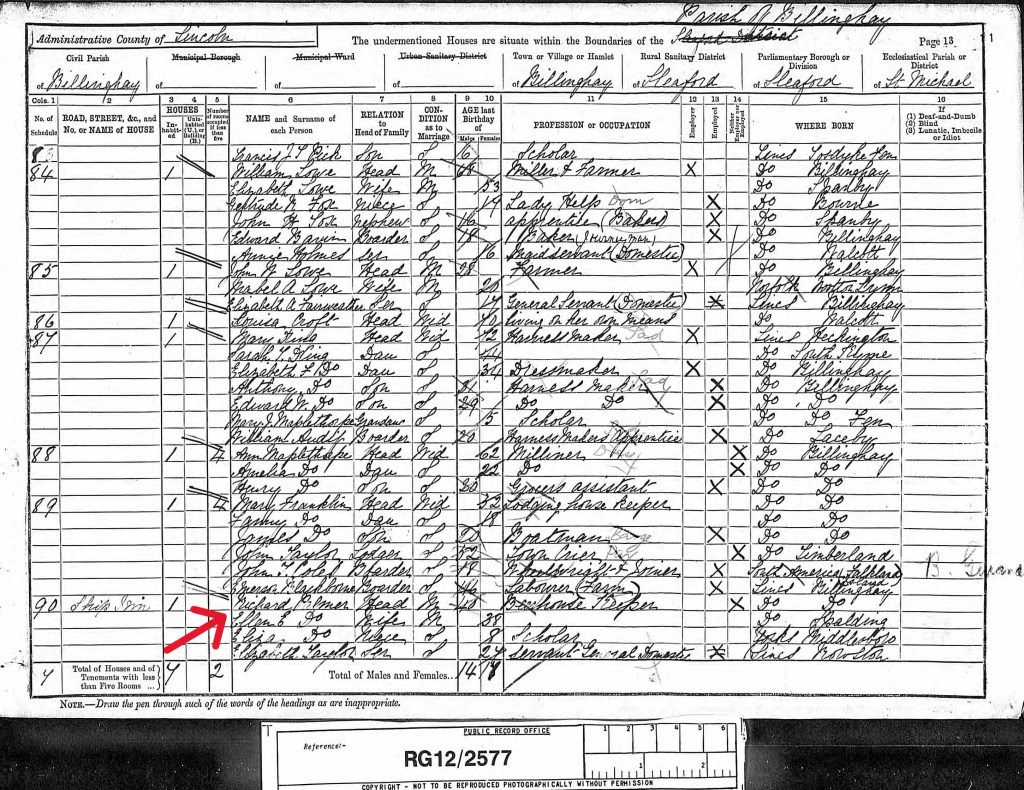 Parish of Billinghay
Administrative County of Lincoln The undermentioned Houses are situate within the Boundaries of the Page 13
Civil Parish Municipal Borough Municipal Ward Urban Sanitary District Town or Village or Hamlet Rural Sanitary District Parliamentary Borough or Division Ecclesiastical Parish or District
of Billinghay of of of of Billinghay of Sleaford of Sleaford of St. Michael
Cols. 1 2 3 4 5 6 7 8 9 10 11 12 13 14 15 16
No. of Schedule ROAD, STREET, &c., and No. or NAME of HOUSE HOUSES Inhabited Uninhabited (U.), or Building (B.) Number of rooms occupied if less than five NAME and Surname of each Person RELATION to Head of Family CONDITION as to Marriage AGE last Birthday of Males Females PROFESSION or OCCUPATION Employer Employed Neither Employer nor Employed WHERE BORN (1) Deaf-and-Dumb (2) Blind (3) Lunatic, Imbecile or Idiot
Son S 16 Scholar Lincs Fen
84 1 William Lowe Head M 68 Miller & Farmer X Do Billinghay
Elizabeth Lowe Wife M 53 Do Spanby
Gertrude Fox Niece S 19 Lady Help Dom X Do Bourne
John H Fox Nephew S 16 apprentice (Baker) X Do Spanby
Edward Boarder S 18 Baker (Journeyman) X Do Billinghay
Annie Holmes Ser S 16 Maid servant (Domestic) Do Walcott
85 1 John W Lowe Head M 28 Farmer X Do Billinghay
Mabel A Lowe Wife M 20 Norfolk
Elizabeth A Fairweather Ser S 17 General Servant (Domestic) X Lincs Billinghay
86 1 Louisa Croft Head Wid 40 Living on her own Means Do Walcott
87 1 Mary King Head Wid 72 Harness Maker X Lincs Heckington
Sarah King Dau S 44 Do South Kyme
Elizabeth Do Dau S 34 Dressmaker X Do Billinghay
Anthony Do Son S Harness Maker X Do Billinghay
Edward W. Do Son S 29 Do Do X Do Do
Mary J Maplethorpe S 5 Scholar Do Do Fen
William Boarder S 20 Harness Makers Apprentice X Do Laceby
88 1 4 Ann Maplethorpe Head Wid 62 Milliner X Do Billinghay
Amelia Do Dau S 22 Do X Do Do
Henry Do Son S 20 Grocers assistant X Do Do
89 1 4 Mary Franklin Head Wid 52 Lodging house keeper Do Do
Fanny Do Dau S 18 Do Do
James Do Son S 20 Boatman Barge X Do Do
John Taylor Lodger S 52 Town Crier X Do Timberland
John T Coley Boarder S 18 Wheelwright & Joiner X South America Falkland Island
Emerson Blackbourn Boarder S Labourer (Farm) X Lincs Billinghay
90 1 Richard Head M 40 Beerhouse Keeper X Do Do
Ellen E Do Wife M 38 Do Spalding
Eliza Do Niece S 8 Scholar Yorks Middlesboro
Elizabeth Taylor Ser S 27 Servant General Domestic X Lincs Rowston
7 Total of Houses and of Tenements with less than Five Rooms ... 7 2 Total of Males and Females... 14 17
NOTE.—Draw the pen through such of the words of the headings as are inappropriate.
PUBLIC RECORD OFFICE
Reference:-
RG12/2577
1 2 3 4 5 6
1 2
COPYRIGHT - NOT TO BE REPRODUCED PHOTOGRAPHICALLY WITHOUT PERMISSION